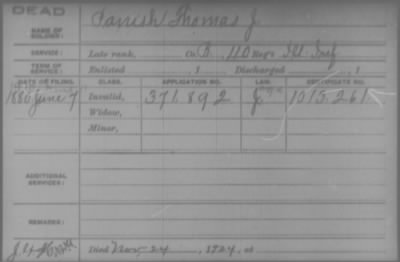 DEAD
NAME OF SOLDIER: Parrish Thomas J.
SERVICE: Late rank, Co. B, 110 Reg't Ill Inf
TERM OF SERVICE: Enlisted , 1 Discharged , 1
DATE OF FILING. CLASS. APPLICATION NO. LAW. CERTIFICATE NO.
1880 June 7 Invalid, 371.892 1015.261
Widow,
Minor,
ADDITIONAL SERVICES:
REMARKS:
Died Nov. 24 , 1924, at